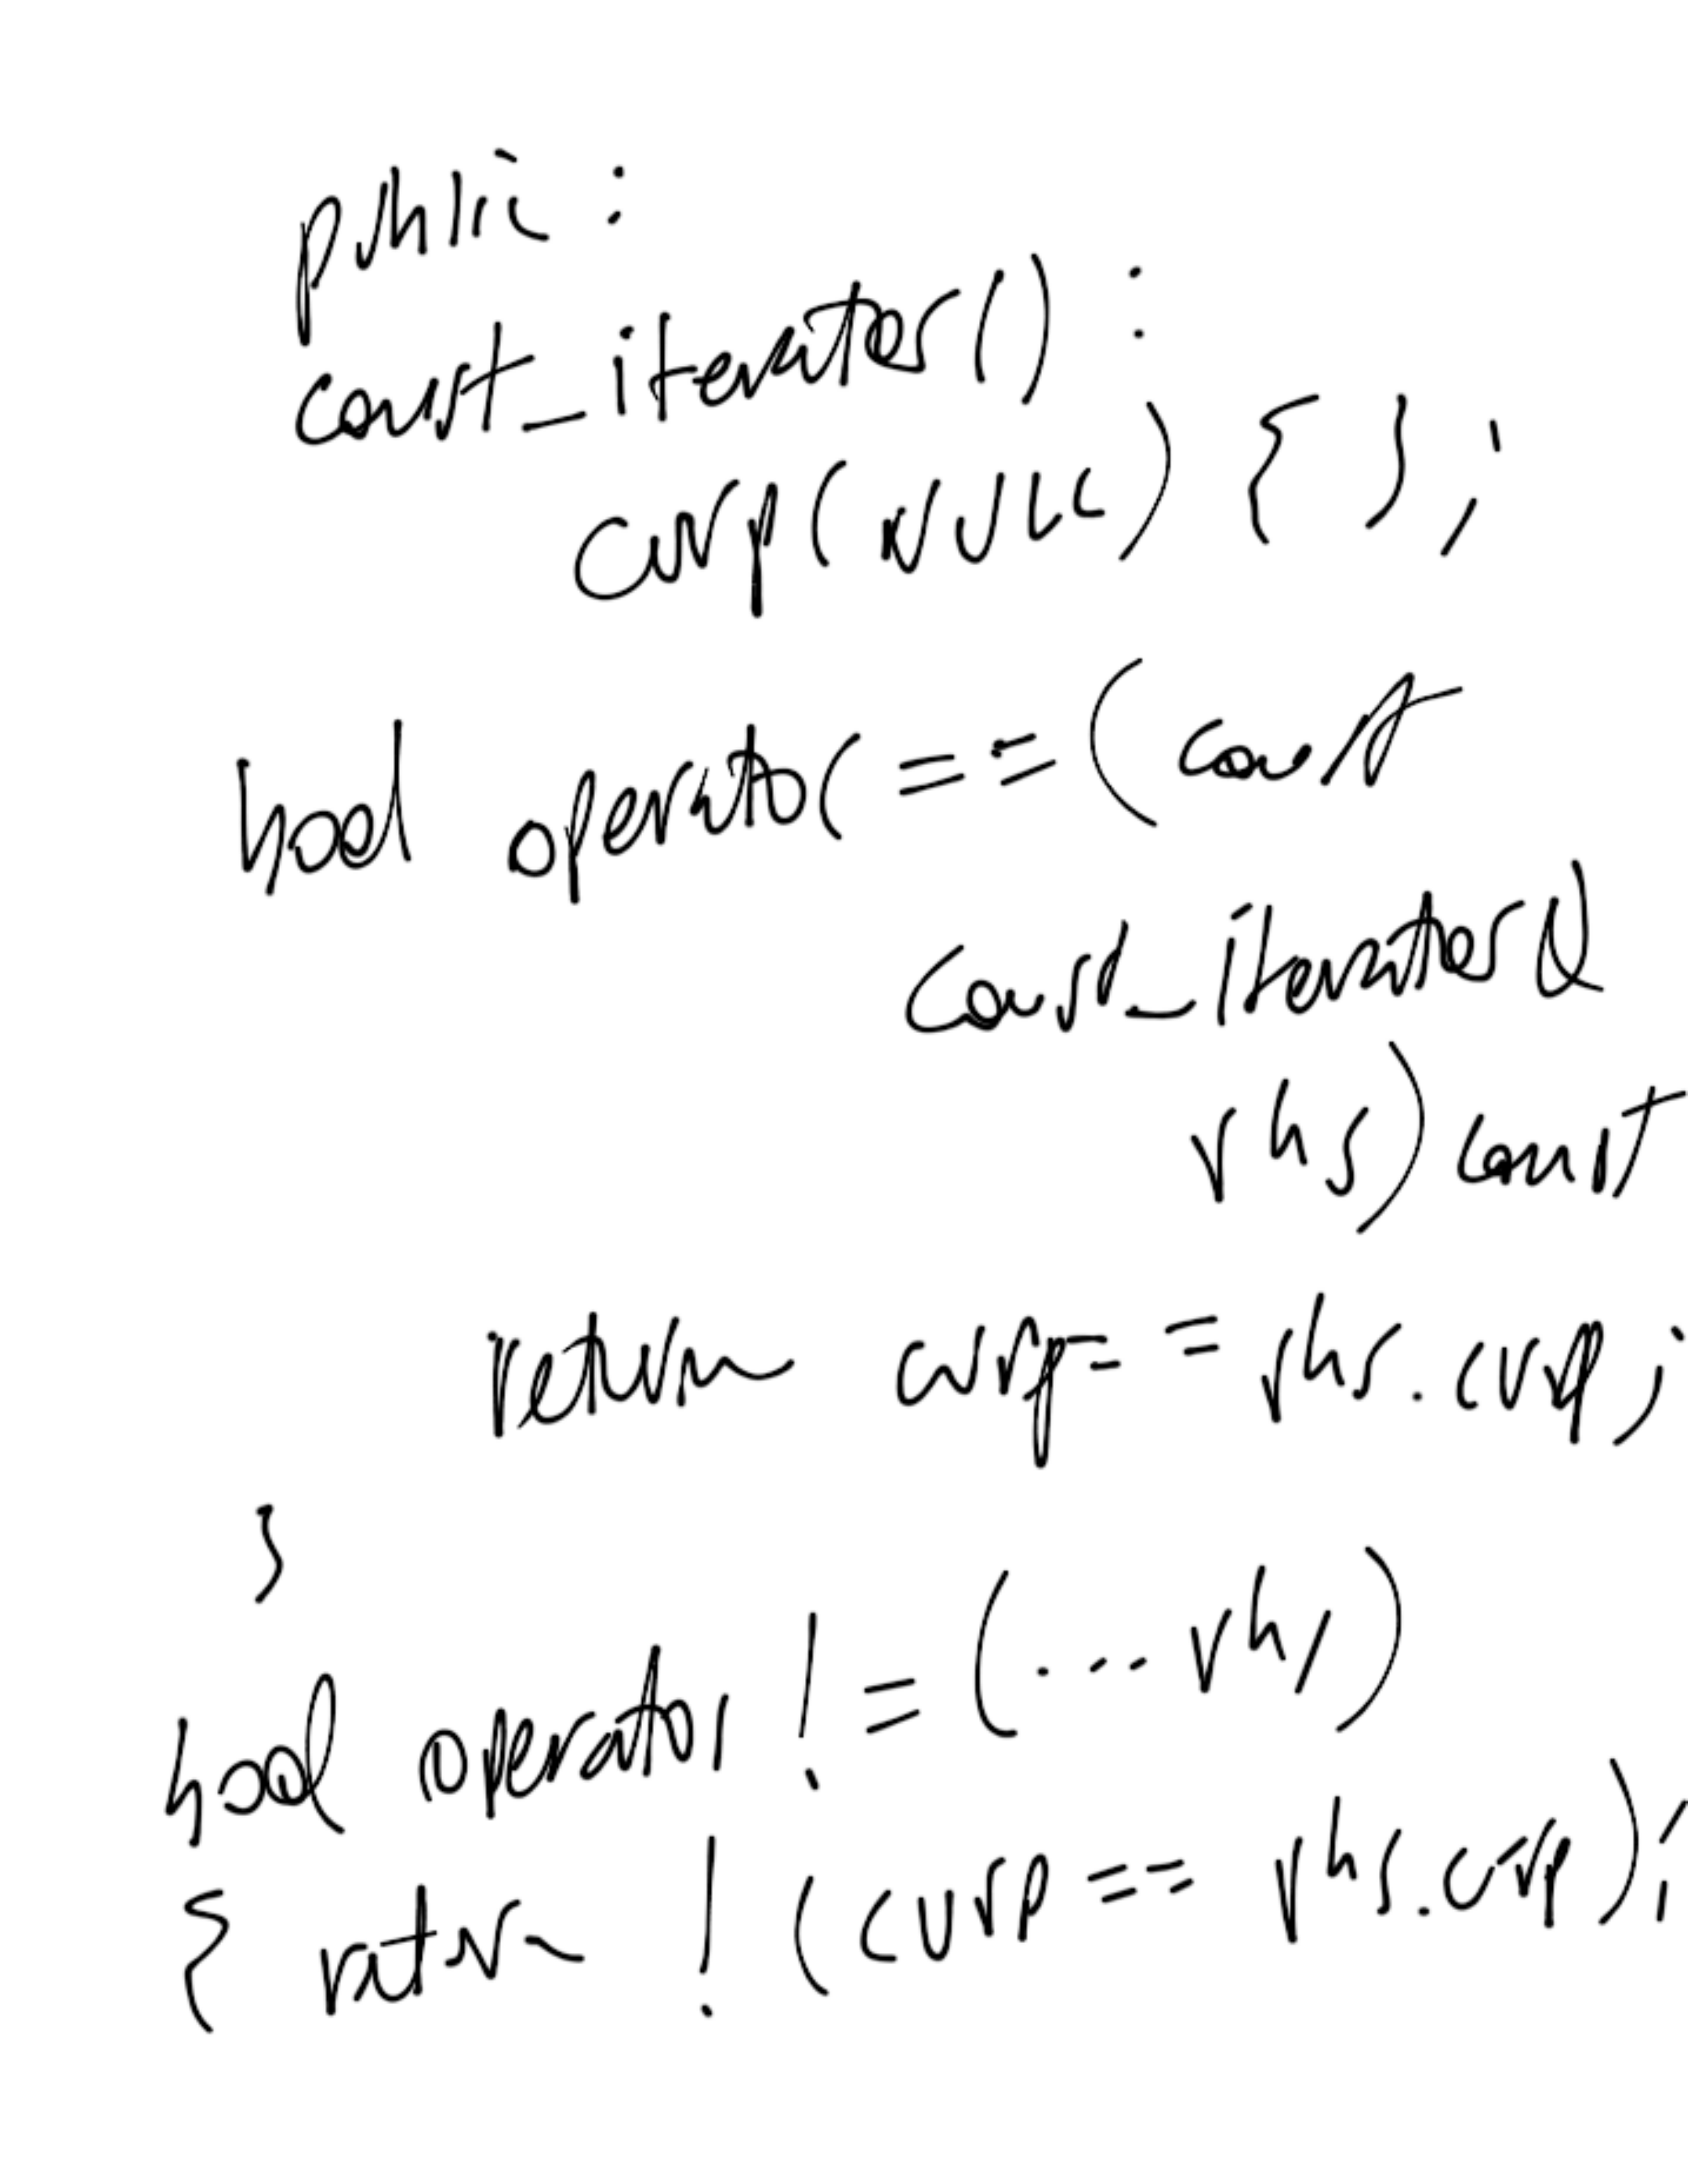 public :
const_iterator() :
curp(NULL) { };
bool operator == (const
const_iterator &
rhs) const
return curp == rhs.curp;
}
bool operator != (... rhs)
{ return ! (curp == rhs.curp);